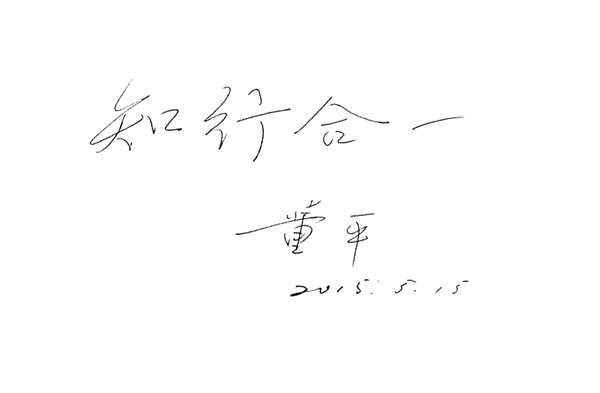 知行合一
董平
2015.5.15